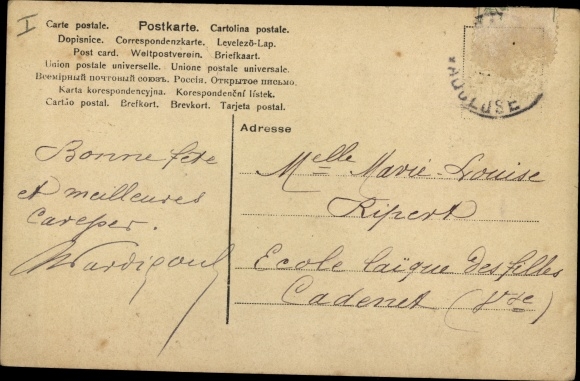 I
Carte postale. Postkarte. Cartolina postale.
Dopisnice. Correspondenzkarte. Levelező-Lap.
Post card. Weltpostverein. Briefkaart.
Union postale universelle. Unione postale universale.
Всемірный почтовый союзъ. Россія. Открытое письмо.
Karta korespondencyjna. Korespondenční lístek.
Cartão postal. Brefkort. Brevkort. Tarjeta postal.
VAUCLUSE
Adresse
Bonne fête
et meilleures
Melle Marie-Louise
Ripert
Ecole laïque des filles
Cadenet (Vse)